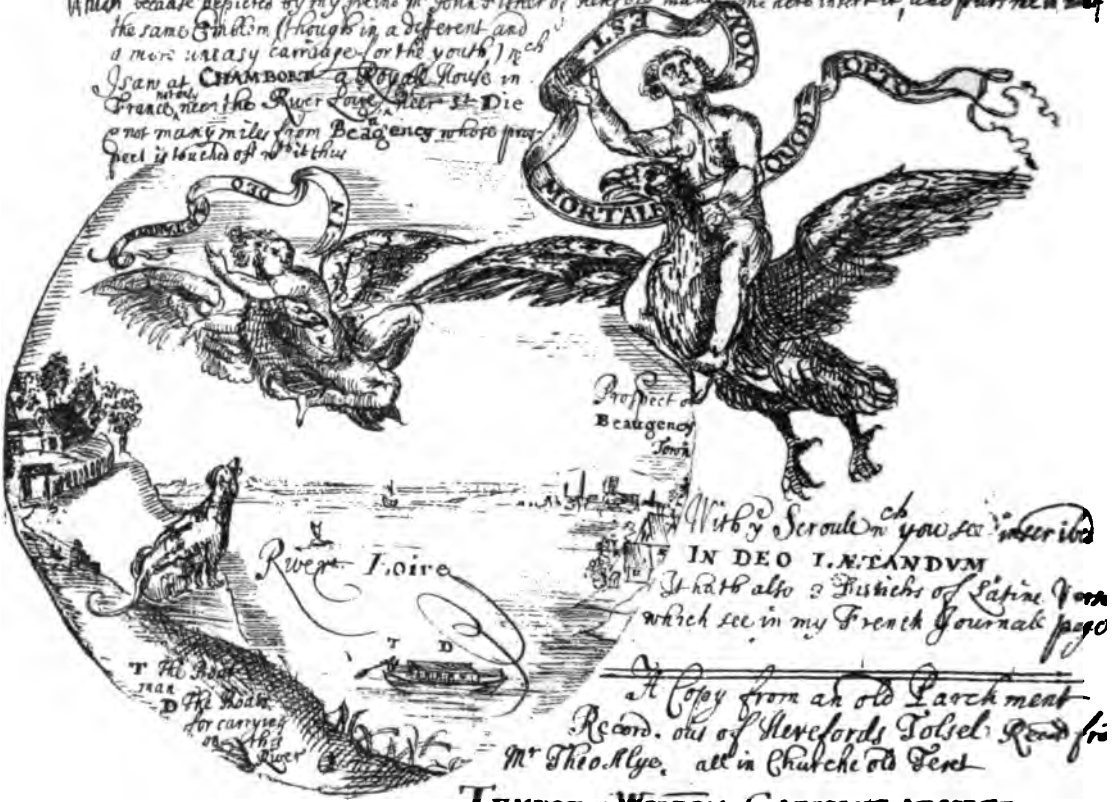 Which because depicted by my friend Mr John Fisher of here insert it, and further
the same Emblem (though in a different and
a more uneasy carriage for the youth,) wch
I saw at CHAMBORT a Royall House in
France, near the River Loire, neer St Die
not many miles from Beaugency whose pros-
pect is touched off wth it thus
NON EST MORTALE QUOD OPTO
IN DEO
Prospect of
Beaugency
Town
River Loire
T D
T The Boat
man
D The Boate
for carrying
on this
River
With ye Scroule wch you see inscribed
IN DEO LÆTANDVM
It hath also 2 Distichs of Latine Verse
which see in my French Journall page
A Copy from an old Parchment
Record. out of Herefords Tolsel
Mr Theo Alye. all in Churche old Text